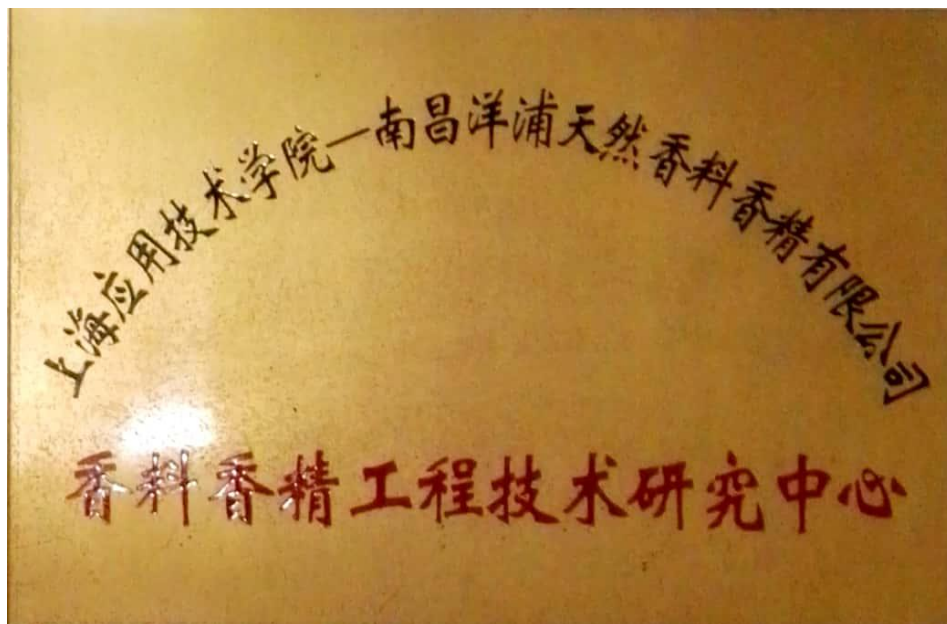 上海应用技术学院—南昌洋浦天然香料香精有限公司
香料香精工程技术研究中心